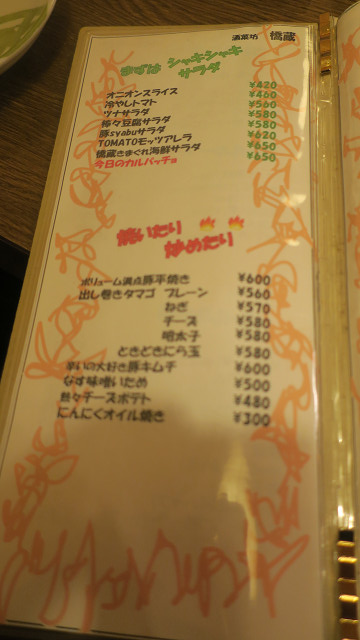 酒菜坊 橋蔵
まずは シャキシャキ
サラダ
オニオンスライス ¥420
冷やしトマト ¥460
ツナサラダ ¥560
柿々豆腐サラダ ¥580
豚syabuサラダ ¥580
TOMATOモッツアレラ ¥620
橋蔵きまぐれ海鮮サラダ ¥650
今日のカルパッチョ ¥650
焼いたり
炒めたり
ボリューム満点豚平焼き ¥600
出し巻きタマゴ プレーン ¥560
ねぎ ¥570
チーズ ¥580
明太子 ¥580
ときどきにら玉 ¥580
辛いの大好き豚キムチ ¥600
なす味噌いため ¥500
チーズポテト ¥480
にんにくオイル焼き ¥300